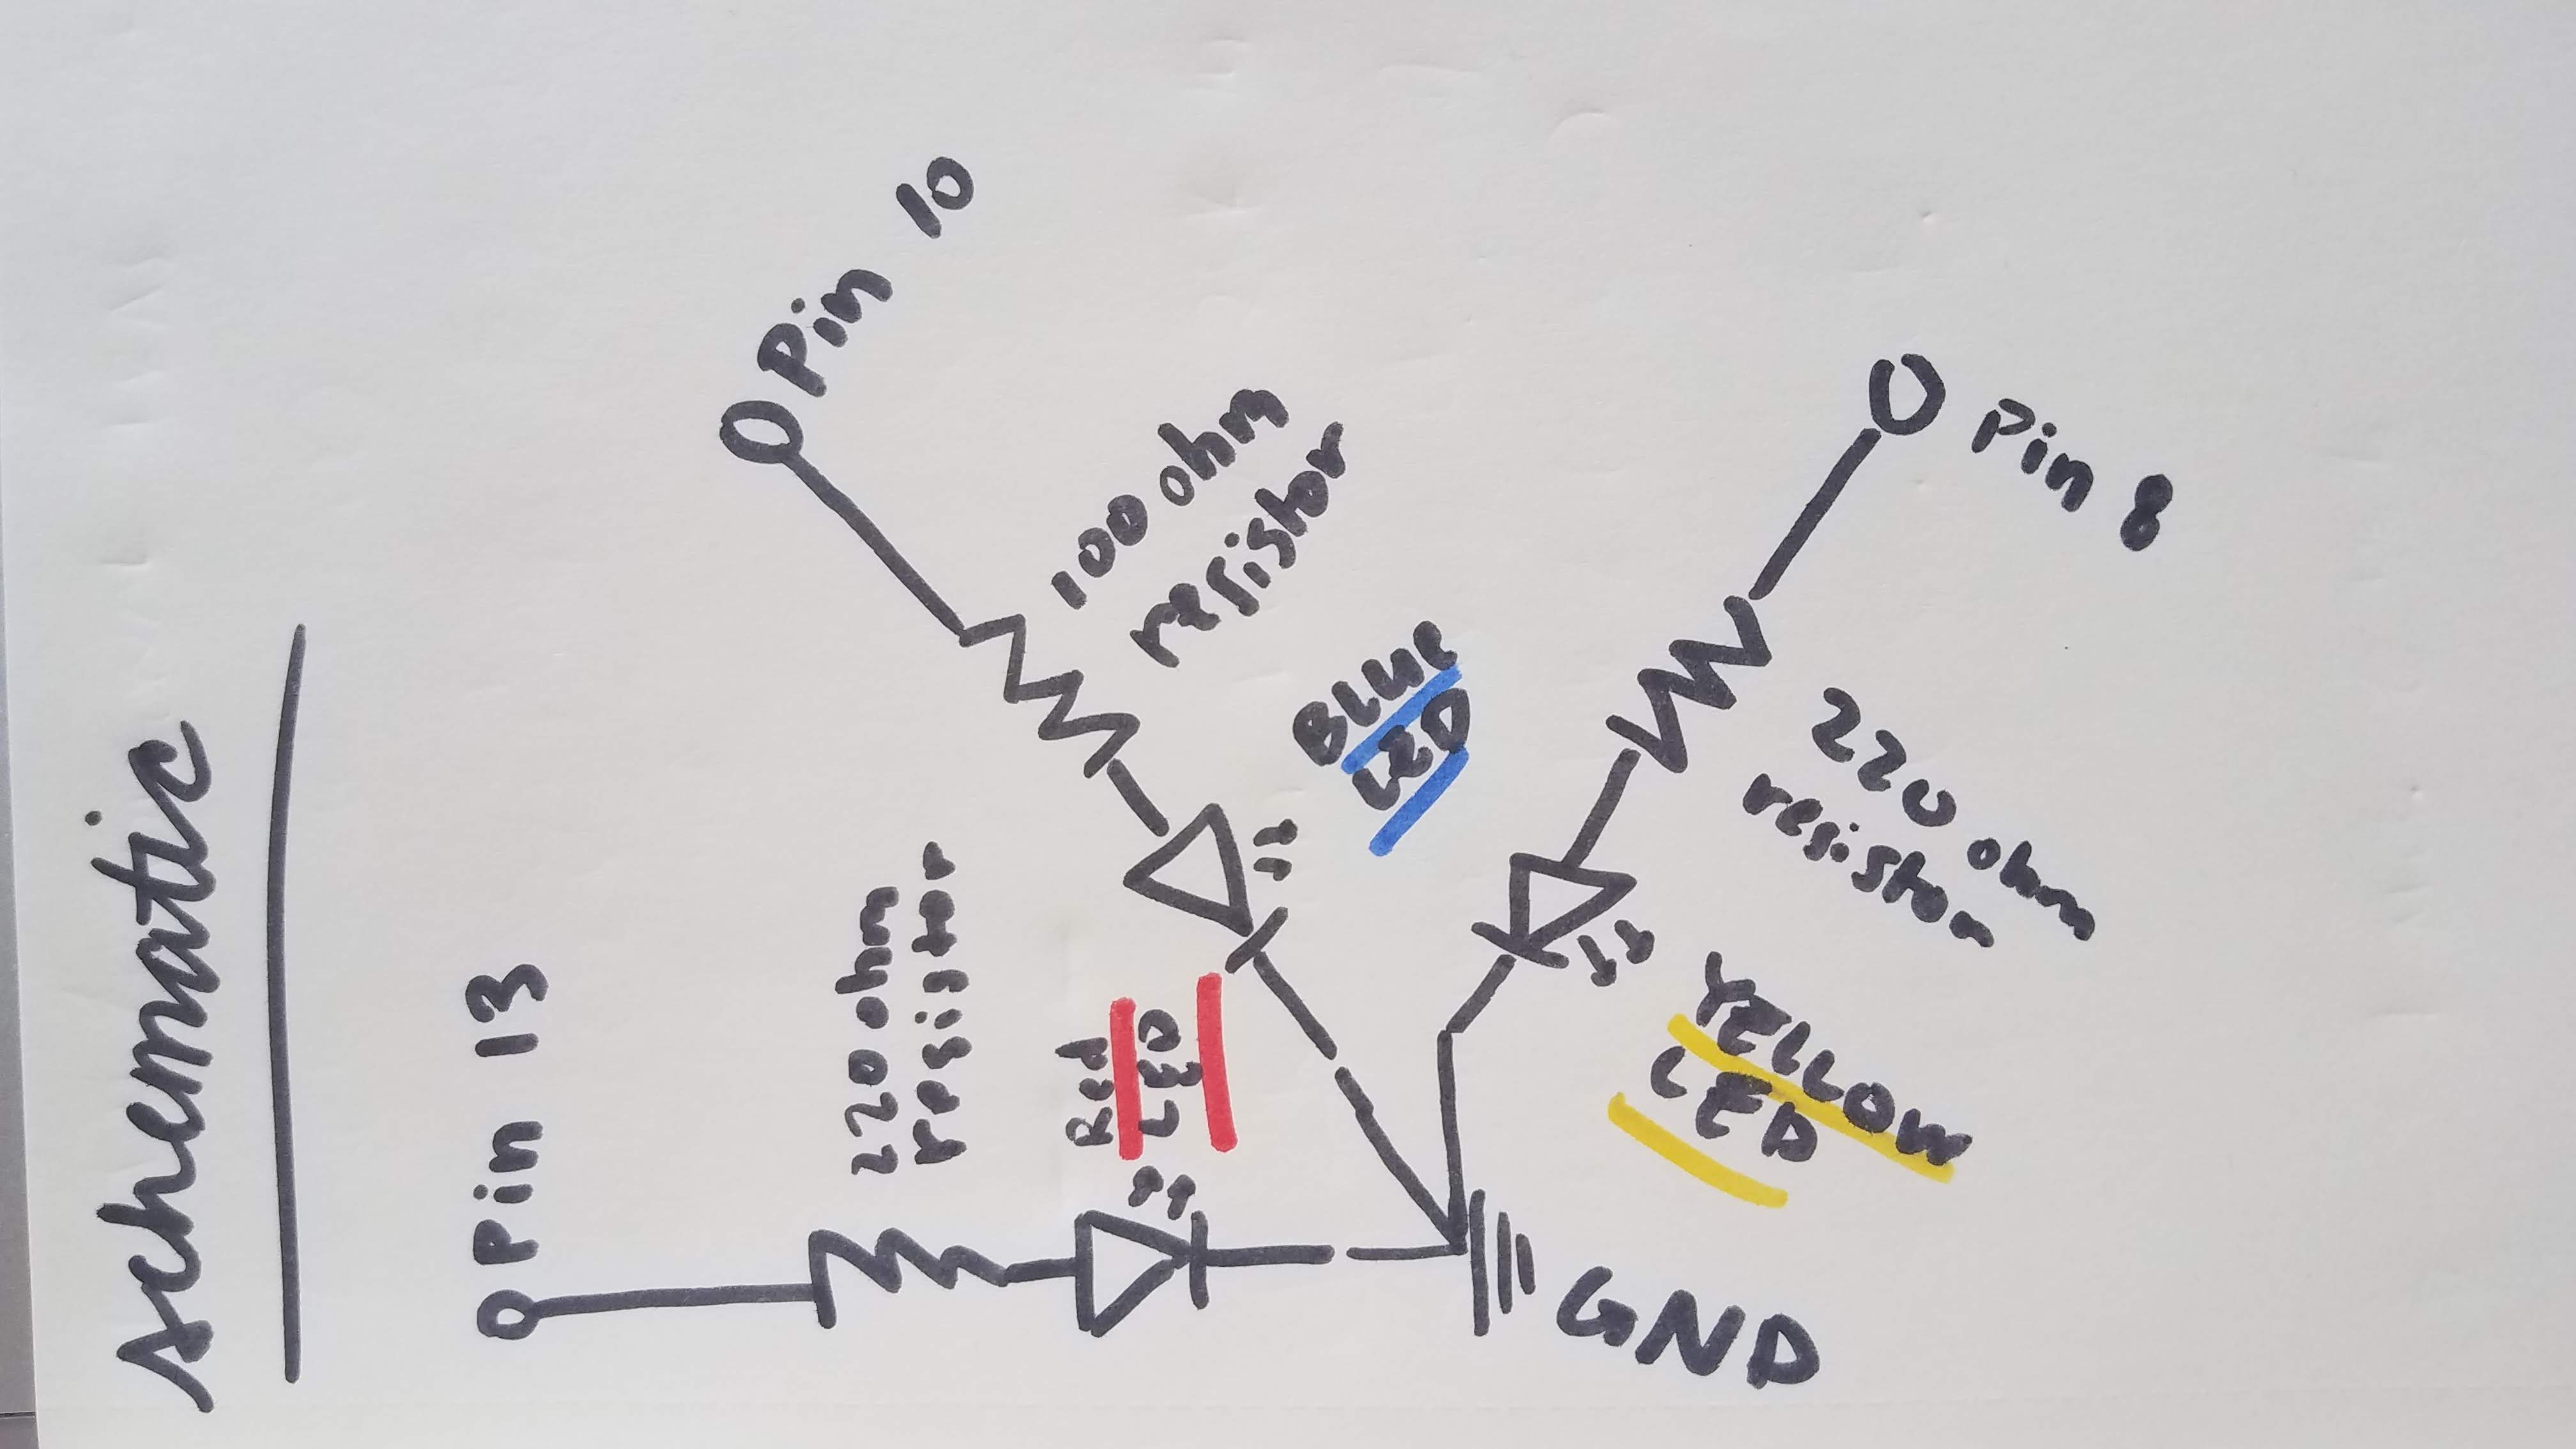 schematic
Pin 13
220 ohm
resistor
Red
LED
Pin 10
100 ohm
resistor
BLUE
LED
GND
YELLOW
LED
220 ohm
resistor
Pin 8